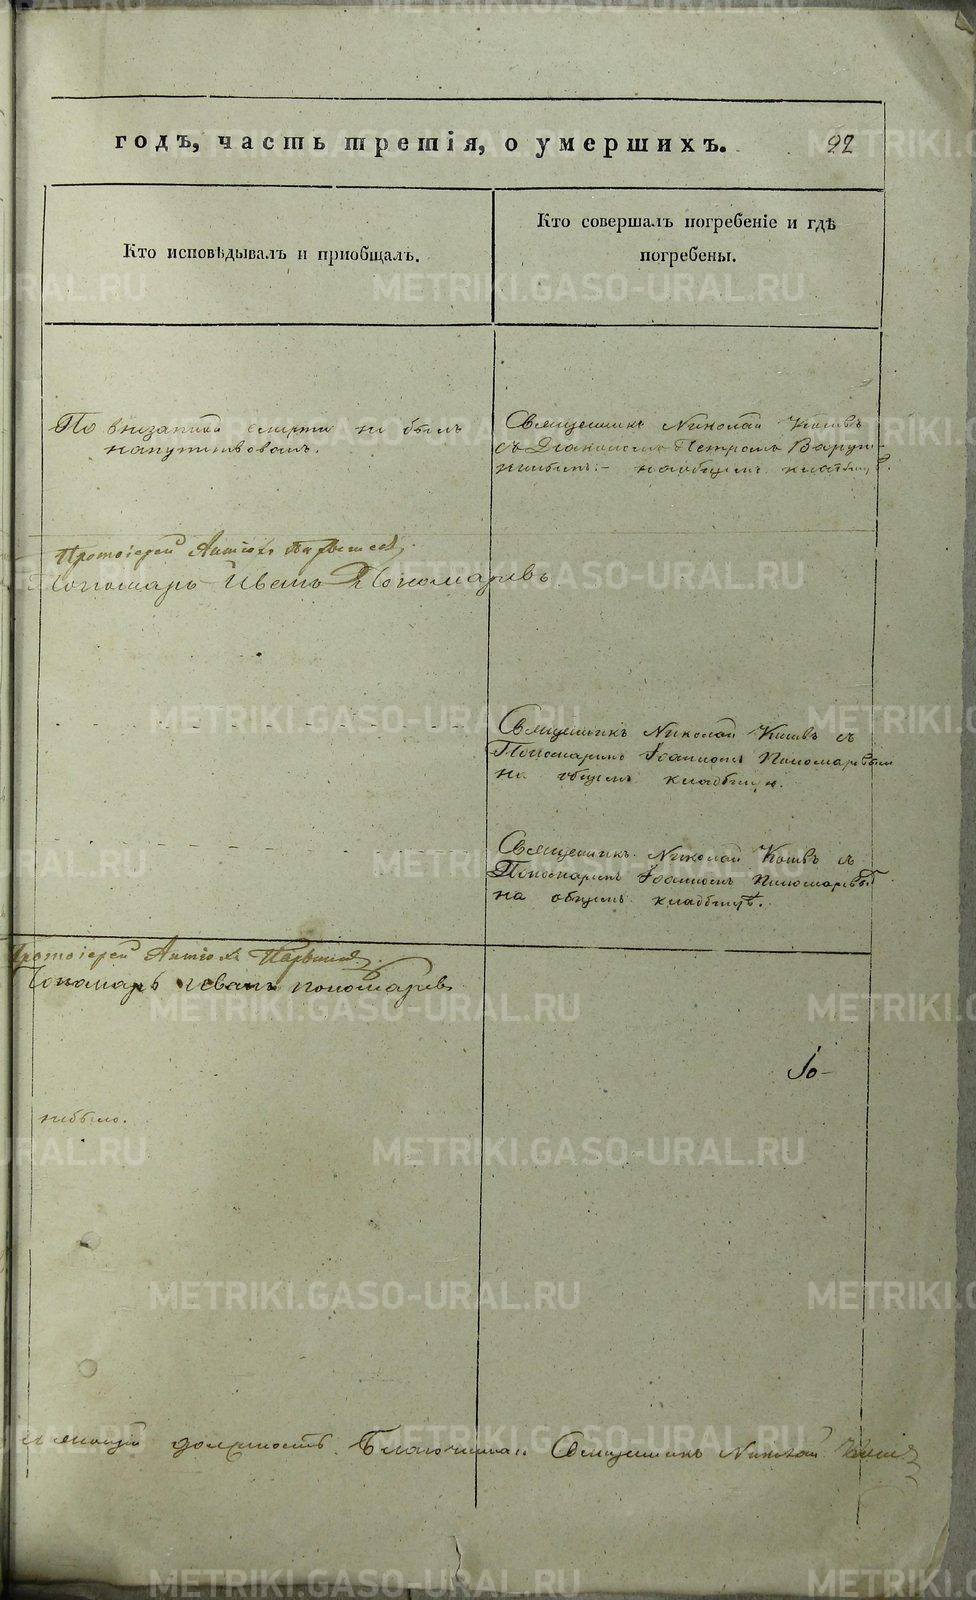 годъ, часть третія, о умершихъ.
92
Кто исповѣдывалъ и приобщалъ.
Кто совершалъ погребеніе и гдѣ
погребены.
По внезапной смерти не былъ
напутствованъ.
Священникъ Николай
съ Діакономъ Петромъ
на общемъ кладбищѣ.
Протоіерей Антіохъ
Пономарь Иванъ Пономаревъ
Священникъ Николай съ
Пономаремъ Іоанномъ Пономаревым
на общемъ кладбищѣ.
Священникъ Николай съ
Пономаремъ Іоанномъ Пономаревы
на общемъ кладбищѣ.
Протоіерей Антіохъ
Пономарь Иванъ Пономаревъ
Іо-
небыло.
должность Благочиннаго Священникъ Николай
METRIKI.GASO-URAL.RU